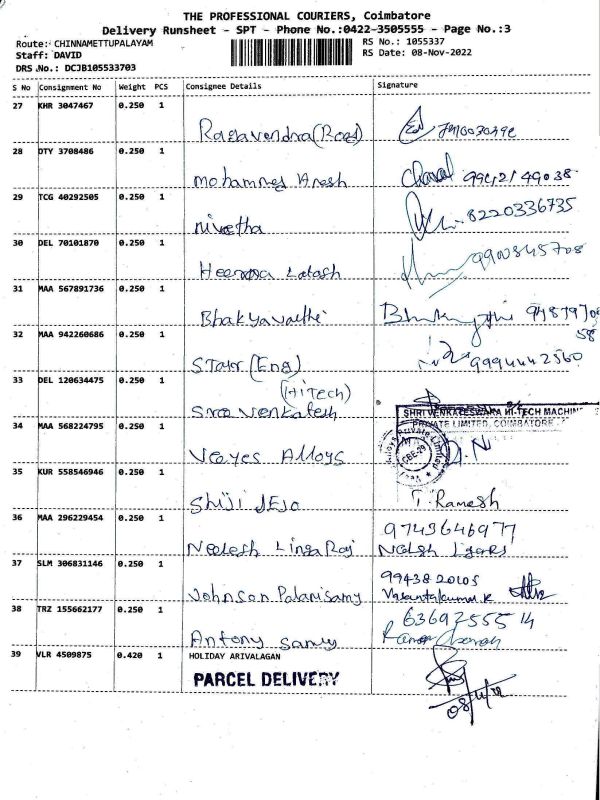 THE PROFESSIONAL COURIERS, Coimbatore
Delivery Runsheet - SPT - Phone No.:0422-3505555 - Page No.:3
Route: CHINNAMETTUPALAYAM
RS No.: 1055337
Staff: DAVID
RS Date: 08-Nov-2022
DRS No.: DCJB105533703
S No Consignment No Weight PCS Consignee Details Signature
27 KHR 3047467 0.250 1
Ragavendra
28 DTY 3708486 0.250 1
29 TCG 40292505 0.250 1
Nivetha 8220336735
30 DEL 70101870 0.250 1
9900845708
31 MAA 567891736 0.250 1
Bhakyavathi
32 MAA 942260686 0.250 1
(Eng) 9994442560
33 DEL 120634475 0.250 1
(HiTech)
Sree venkatesh
SHRI VENKATESWARA HI-TECH MACHIN
PRIVATE LIMITED, COIMBATORE
34 MAA 568224795 0.250 1
Veeyes Alloys
35 KUR 558546946 0.250 1
Shiji JEJO T. Ramesh
36 MAA 296229454 0.250 1
9743646977
Neelesh Linga Raj
37 SLM 306831146 0.250 1
9943820105
Johnson Palanisamy Vasanthakumar.K
38 TRZ 155662177 0.250 1
6369255514
Antony Samy
39 VLR 4509875 0.420 1 HOLIDAY ARIVALAGAN
PARCEL DELIVERY
08/11/22